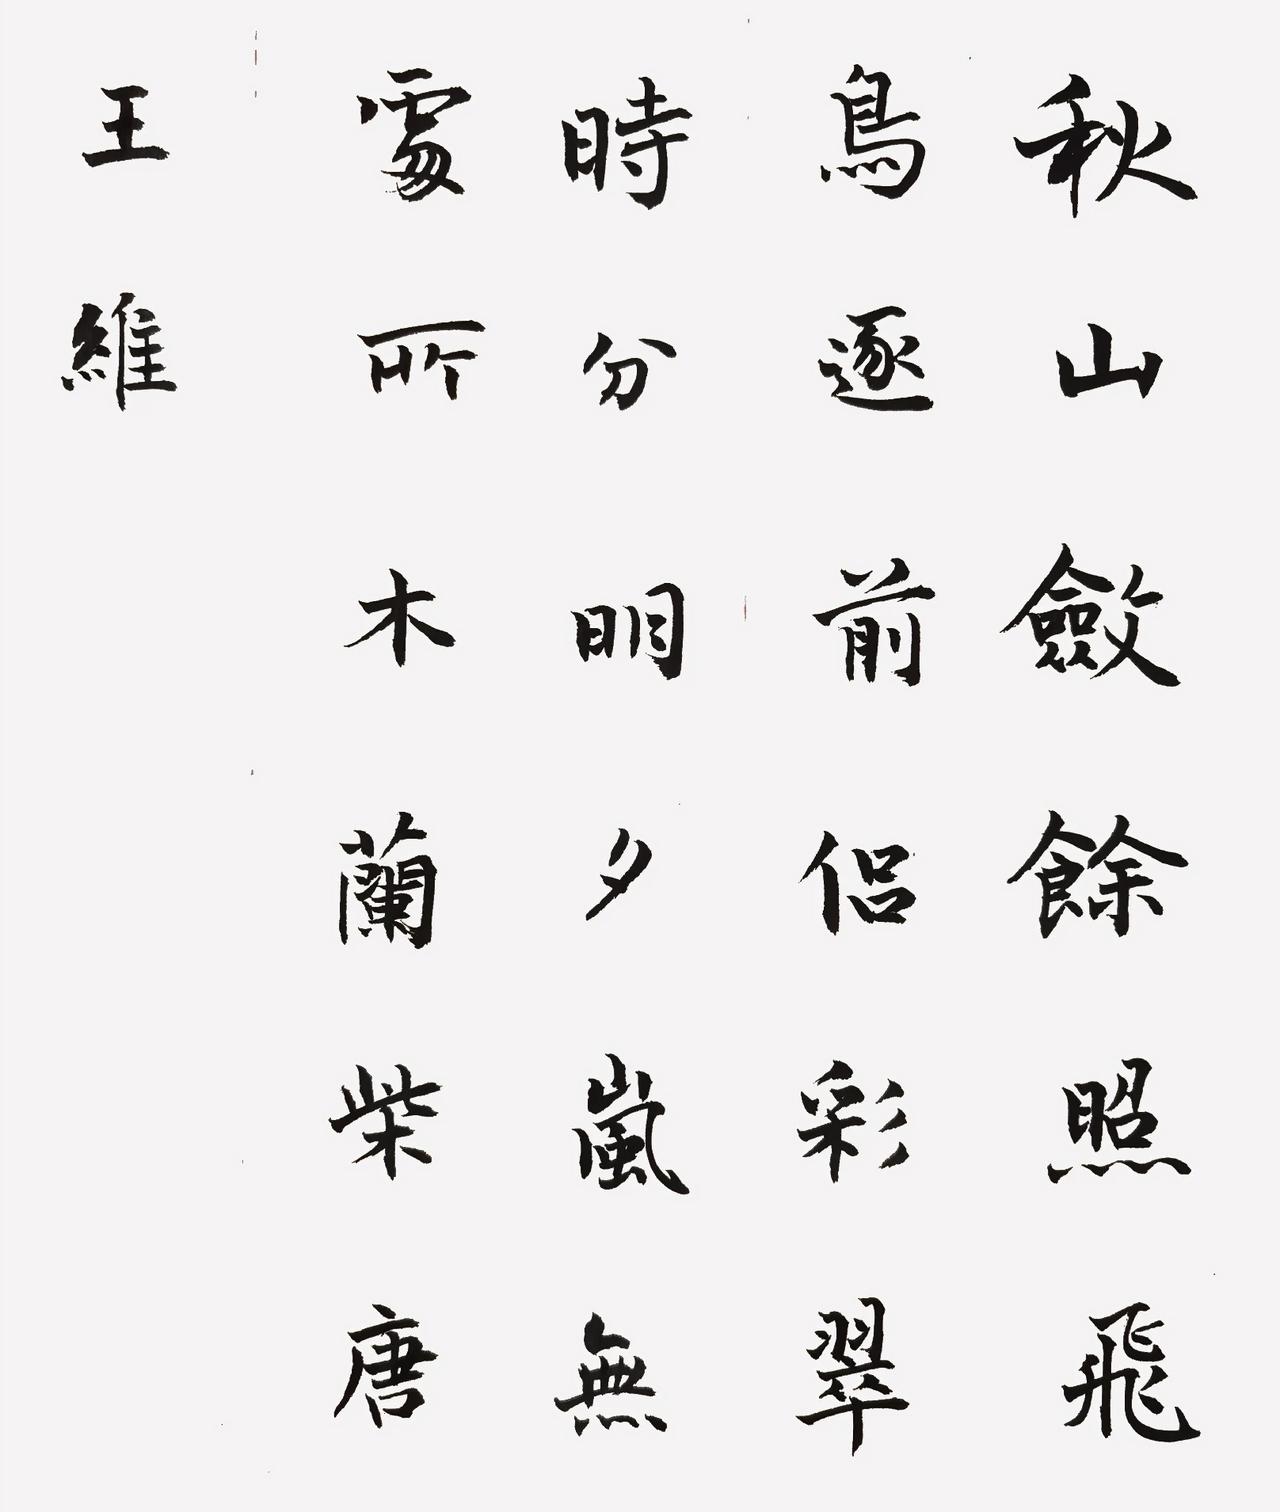 秋山斂餘照飛
鳥逐前侶彩翠
時分明夕嵐無
處所木蘭柴唐
王維